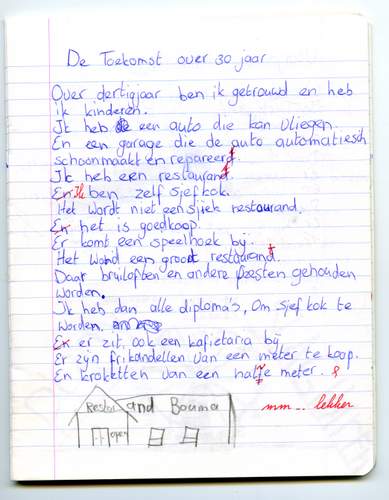 De Toekomst over 30 jaar
Over dertigjaar ben ik getrouwd en heb
ik kinderen.
Ik heb een auto die kan vliegen.
En een garage die de auto automatiesch
schoonmaakt en repareerd.
Ik heb een restaurand.
En Ik ben zelf sjefkok.
Het wordt niet een sjiek restaurand.
En het is goedkoop.
Er komt een speelhoek bij.
Het word een groot restaurand.
Daar bruiloften en andere feesten gehouden
worden.
Ik heb dan alle diploma's, om sjef kok te
worden.
Er zit ook een kafietaria bij
Er zijn frikandellen van een meter te koop.
En kroketten van een halfe meter.
mm... lekker
Restaurand Bouma
open